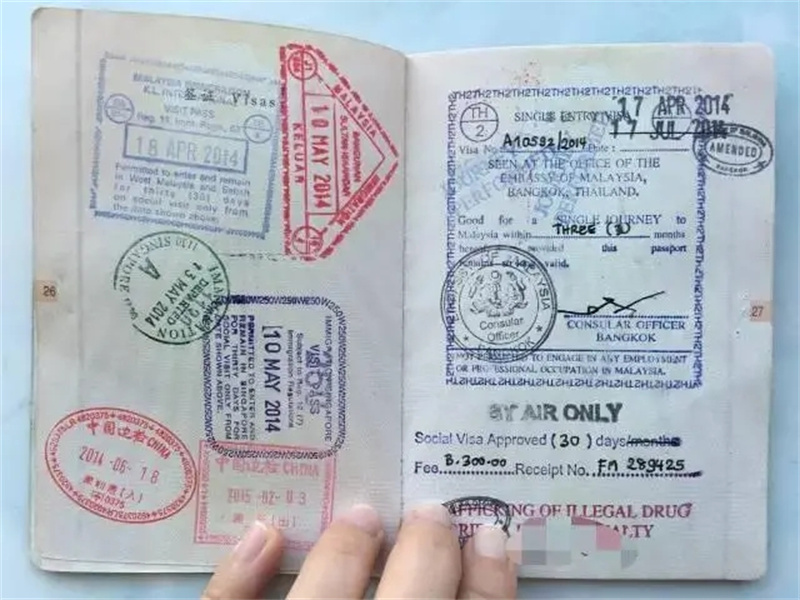 签证 Visas
MALAYSIA IMMIGRATION
VISIT PASS
18 APR 2014
Permitted to enter and remain
in West Malaysia and Sabah
for thirty (30) days
on social visit only from
the date shown above.
MALAYSIA
10 MAY 2014
KELUAR
SINGAPORE
A
DEPARTED
13 MAY 2014
VISIT PASS
Subject to Reg. 12 (7)
Immigration Regulations
10 MAY 2014
PERMITTED TO ENTER AND
REMAIN IN SINGAPORE
FOR THIRTY DAYS FOR
SOCIAL VISIT ONLY FROM
DATE SHOWN ABOVE.
中国边检CHINA
2014-06-18
中国边检CHINA
26
TH
2
SINGLE ENTRY VISA
17 APR 2014
17 JUL 2014
Visa No. A10592/2014 Date :
AMENDED
SEEN AT THE OFFICE OF THE
EMBASSY OF MALAYSIA,
BANGKOK, THAILAND.
Good for a SINGLE JOURNEY to
Malaysia within THREE (3) months
hereof provided this passport
remains valid.
Consular
Officer
BANGKOK
CONSULAR OFFICER
BANGKOK
NOT PERMITTED TO ENGAGE IN ANY EMPLOYMENT
OR PROFESSIONAL OCCUPATION IN MALAYSIA.
27
BY AIR ONLY
Social Visa Approved (30) days/months
Fee B.300-00 Receipt No. FM 289425
TRAFFICKING OF ILLEGAL DRUG